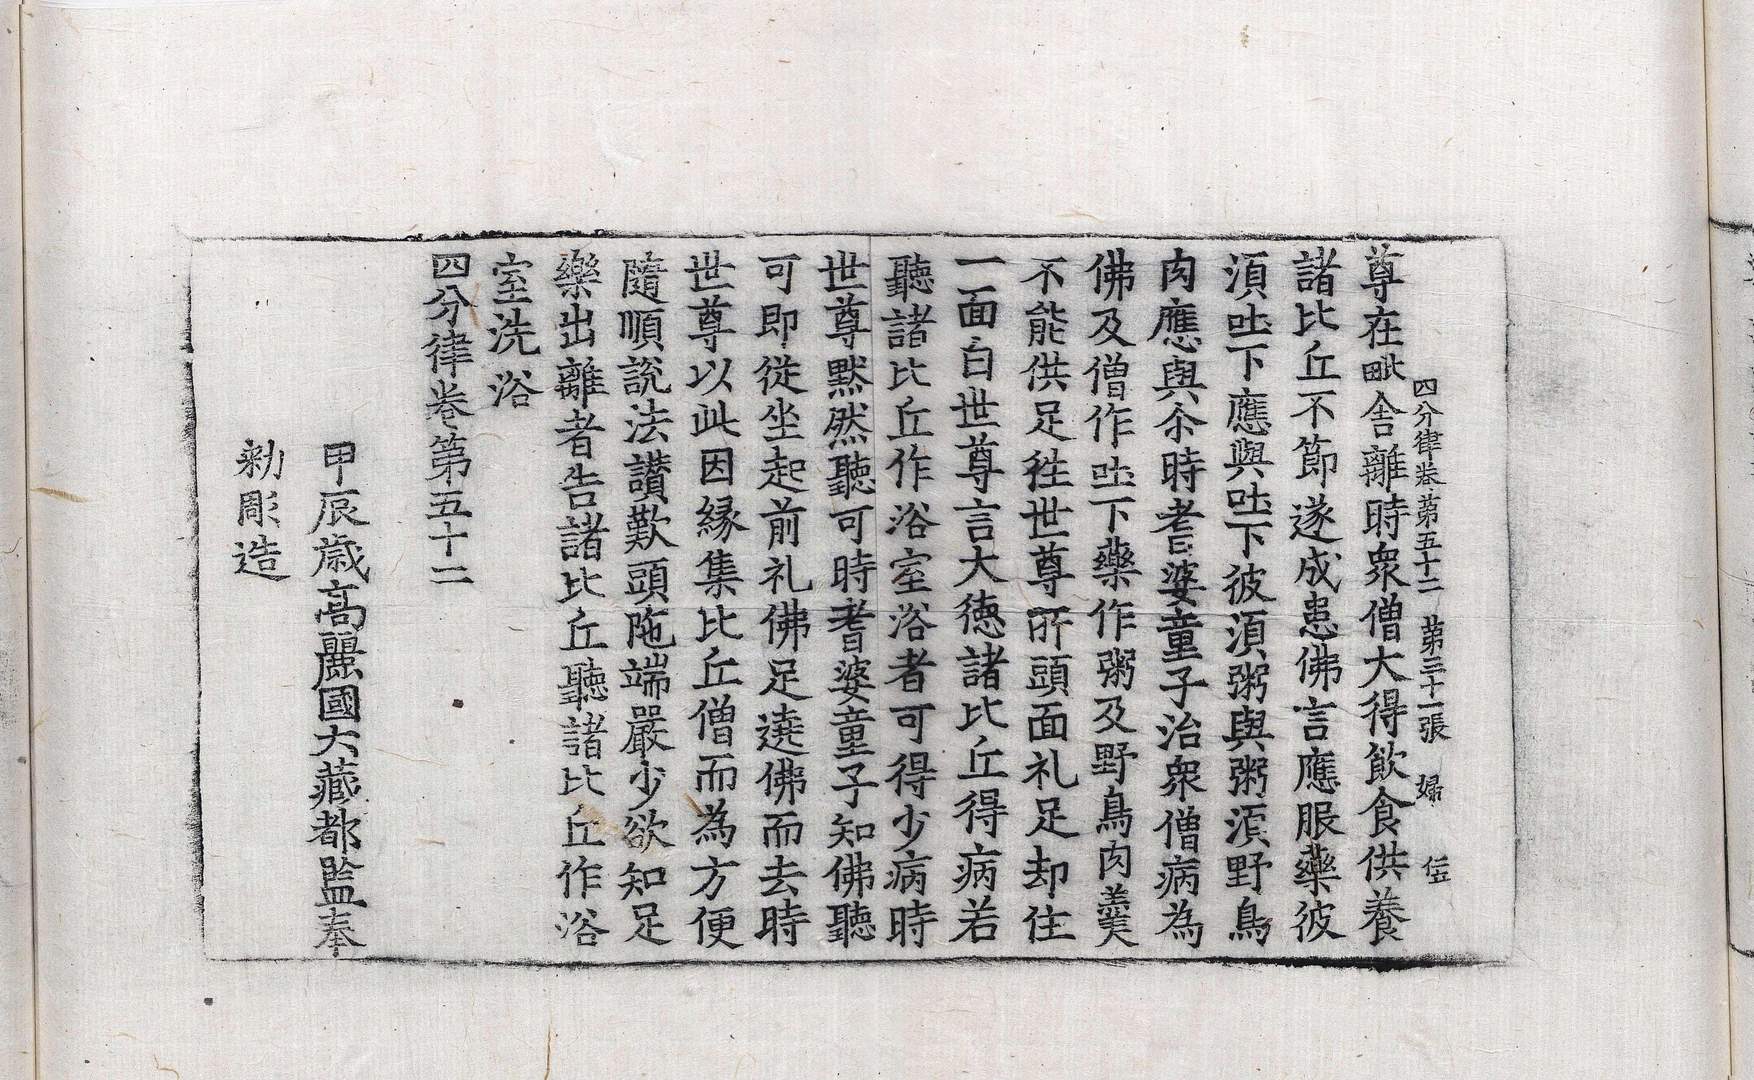 四分律卷第五十二 第三十一張 婦
尊在毗舍離時衆僧大得飲食供養
諸比丘不節遂成患佛言應服藥彼
湏吐下應與吐下彼湏粥與粥湏野鳥
肉應與尒時耆婆童子治衆僧病為
佛及僧作吐下藥作粥及野鳥肉羹
不能供足往世尊所頭面礼足却住
一面白世尊言大德諸比丘得病若
聽諸比丘作浴室浴者可得少病時
世尊默然聽可時耆婆童子知佛聽
可即從坐起前礼佛足遶佛而去時
世尊以此因緣集比丘僧而為方便
隨順說法讃歎頭陁端嚴少欲知足
樂出離者告諸比丘聽諸比丘作浴
室洗浴
四分律卷第五十二
甲辰歲高麗國大藏都監奉
勑彫造